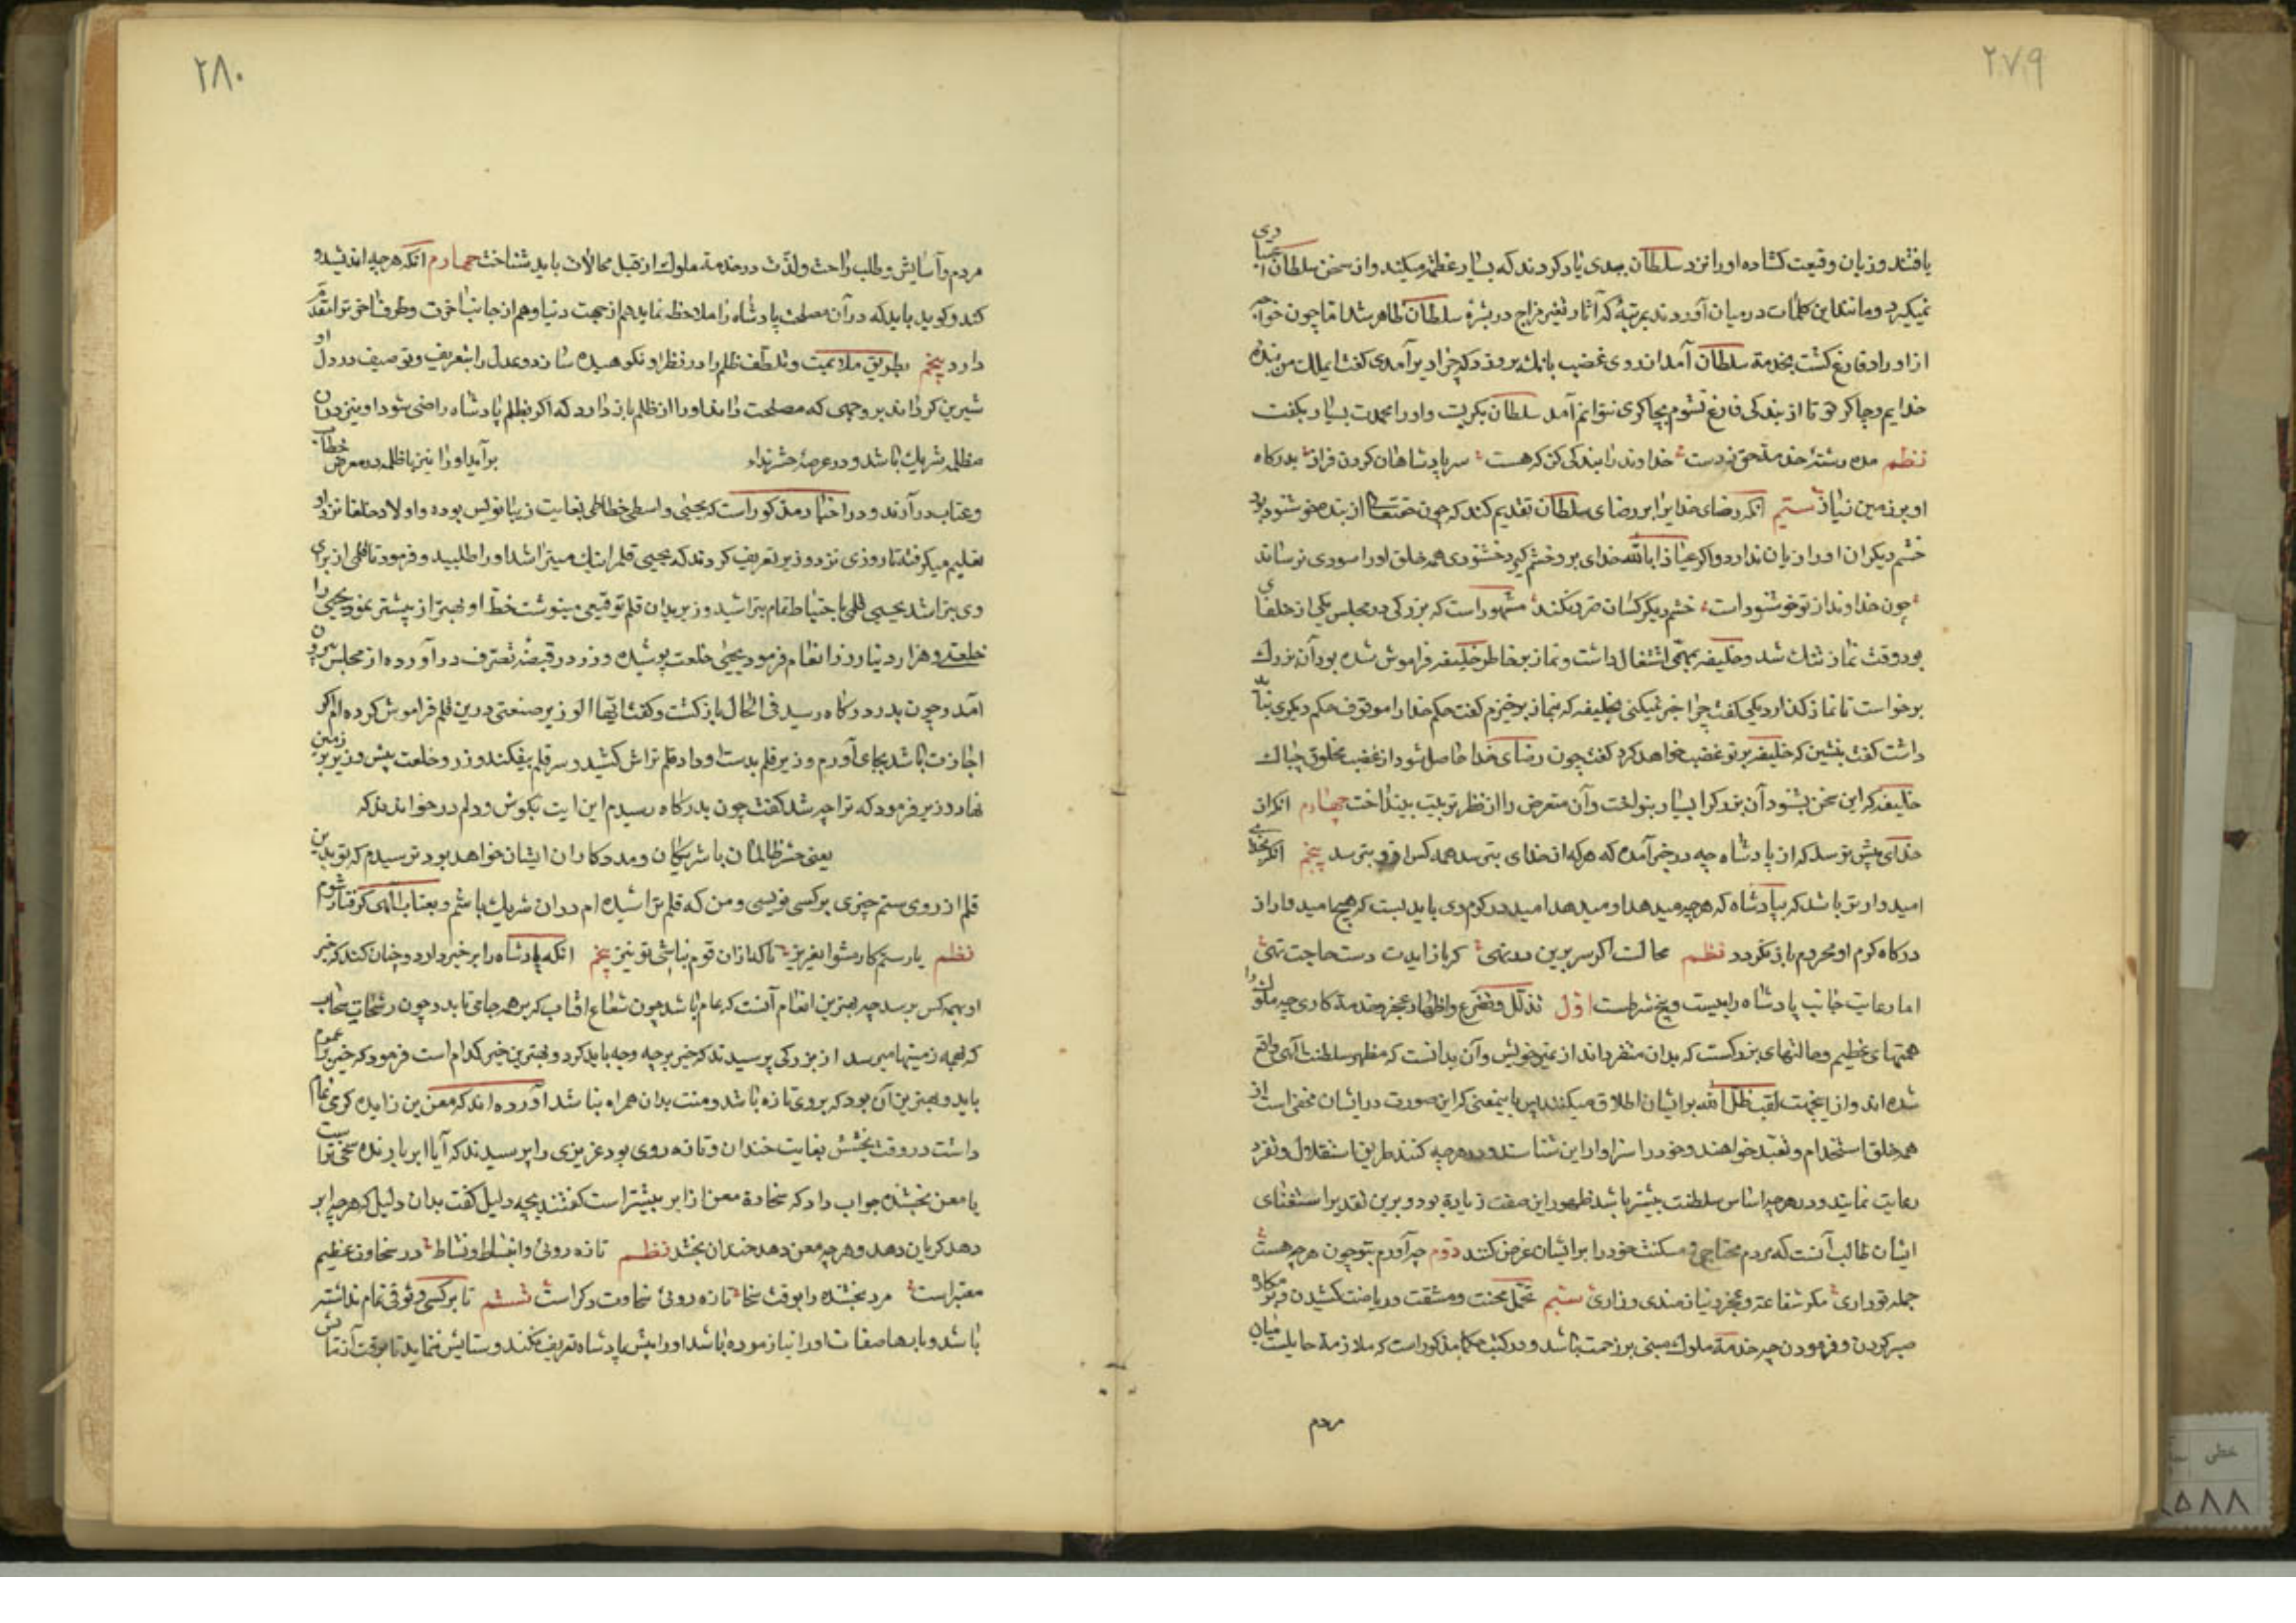 ۲۷۹
یافتند و زبان وقیعت کشاده اورا نزد سلطان ببدی یاد کردند که بسیار عظمة میکند و از سخن سلطان
نمیگیرد و مانند این کلمات در میان آوردند بمرتبهٔ که آثار تغیر مزاج در بشرهٔ سلطان ظاهر شد اما چون خواجه
از اوراد فارغ کشت بخدمة سلطان آمد از روی غضب بانك برو زد که چرا دیر آمدی کفت ایملك من بندهٔ
خدایم و چاکر تو تا از بندکی فارغ نشوم بچاکری نتوانم آمد سلطان بکریست و اورا محمدت بسیار بکفت
نظم مده رشتهٔ خدمة حق ز دست خداوند را بندکی کن که هست سر پادشاهان کردن فراز بدرکاه
او بر زمین نیاز سیّم انکه رضای خدایرا بر رضای سلطان تقدیم کند که چون حقتعالی از بنده خوشنود بود
خشم دیکران اورا زیان ندارد و اکر عیاذا بالله خدای برو خشم کیرد خشنودی همه خلق اورا سودی نرساند
چون خداوند از تو خوشنود است خشم دیکر کسان ضرر نکند مشهور است که بزرکی در مجلس یکی از خلفای
بود وقت نماز تنك شد و خلیفه بمهمّی اشتغال داشت و نماز بر خاطر خلیفه فراموش شده بود آن بزرك
برخواست تا نماز کذارد یکی کفت چرا خبر نمیکنی بخلیفه که بنماز برخیزم کفت حکم خدارا موقوف حکم دیکری نباید
داشت کفت بنشین که خلیفه بر تو غضب خواهد کرد کفت چون رضای خدا حاصل شود از غضب مخلوق چه باك
خلیفه که این سخن بشنود آن بزرکرا بسیار بنواخت و آن متعرض را از نظر تربیت بینداخت چهارم انکه از
خدای بیش ترسد که از پادشاه چه در خبر آمده که هر که از خدای بترسد همه کس ازو بترسد پنجم انکه بخدای
امیدوارتر باشد که بپادشاه که هر چه میدهد او میدهد امید در کرم وی باید بست که هیچ امیدوار از
درکاه کرم او محروم باز نکردد نظم محالست اکر سر برین در نهی که باز آیدت دست حاجت تهی
اما رعایت جانب پادشاه را بیست و پنج شرطست اوّل تذلل و تضرع و اظهار عجز و خدمة کاری چه ملوك را
همتهای عظیم و حالتهای بزرکست که بدان متفرداند از غیر خویش و آن بدانست که مظهر سلطنت الهی واقع
شده‌اند و ازینجهت لقب ظلّ الله بر ایشان اطلاق میکنند پس باینمعنی که این صورت در ایشان مخفی است از
همه خلق استخدام و تعبد خواهند و خود را سزاوار این شناسند و در هر چه کنند طریق استقلال و تفرد
رعایت نمایند و در هر چه اساس سلطنت بیشتر باشد ظهور این صفت زیادة بود و برین تقدیر استغنای
ایشان طالب آنست که مردم محتاجی و مسکنت خود را بر ایشان عرض کنند دوّم چه آورم بتو چون هر چه هست
جمله تو داری مکر شفاعة و عجز و نیازمندی و زاری سیّم تحمّل محنت و مشقت و ریاضت کشیدن و بر مکاره
صبر کردن و فرمودن چه خدمة ملوك مبنی بر زحمت باشد و در کتب حکما مذکور است که ملازمة حایلیست میان
مردم
۲۸۰
مردم و آسایش و طلب راحت و لذّت در خدمة ملوك از قبیل محالات باید شناخت چهارم انکه هر چه اندیشد و
کند و کوید باید که در آن مصلحت پادشاه را ملاحظه نماید هم از جهت دنیا و هم از جانب آخرت و طرف آخرة را مقدّم
دارد پنجم بطریق ملایمت و تلطّف ظلم را در نظر او نکوهیده سازد و عدل را بتعریف و توصیف در دل او
شیرین کرداند بر وجهی که مصلحت داند اورا از ظلم باز دارد که اکر بظلم پادشاه راضی شود او نیز در آن
مظلمه شریك باشد و در عرصهٔ حشر نداء برآید اورا نیز با ظلمه در معرض خطاب
و عتاب درآرند و در اخبار مذکور است که یحیی واسطی خطاطی بغایت زیبا نویس بوده و اولاد خلفا نزد او
تعلیم میکرفتند تا روزی نزد وزیر تعریف کردند که یحیی قلم را نیك میتراشد اورا طلبید و فرمود تا قلمی از برای
وی بتراشد یحیی قلمی باحتیاط تمام بتراشید وزیر بدان قلم توقیعی مینوشت خطّ او بهتر از پیشتر نمود یحیی را
خلعت و هزار دینار زر انعام فرمود یحیی خلعت پوشیده و زر در قبضهٔ تصرّف درآورده از مجلس بیرون
آمد و چون بدر درکاه رسید فی الحال بازکشت و کفت ایّها الوزیر صنعتی درین قلم فراموش کرده‌ام اکر
اجازت باشد بجای آورم وزیر قلم بدست او داد قلم تراش کشید و سر قلم بیفکند و زر و خلعت پیش وزیر بر زمین
نهاد وزیر فرمود که ترا چه شد کفت چون بدرکاه رسیدم این ایت بکوش دلم درخواندند که
یعنی حشر ظالمان با شریکان و مددکاران ایشان خواهد بود ترسیدم که تو بدین
قلم از روی ستم چیزی بر کسی نویسی و من که قلم تراشیده‌ام در ان شریك باشم و بعتاب الهی کرفتار شوم
نظم یار ستمکار مشو ایعزیز تا که ازان قوم نباشی تو نیز پنجم انکه پادشاه را بر خیر دارد و چنان کند که خیر
او بهمه کس برسد چه بهترین انعام آنست که عام باشد چون شعاع آفتاب که بر همه جا می‌تابد و چون رشحات سحاب
که بهمه زمینها میرسد از بزرکی پرسیدند که خیر بر چه وجه باید کرد و بهترین خیر کدام است فرمود که خیر بر عموم
باید و بهترین آن بود که بروی تازه باشد و منت بدان همراه نباشد آورده‌اند که معن بن زایده کرمی تمام
داشت در وقت بخشش بغایت خندان و تازه روی بود عزیزی را پرسیدند که آیا ابر بارنده سخی‌تر است
یا معن بخشنده جواب داد که سخاوة معن از ابر بیشتر است کفتند بچه دلیل کفت بدان دلیل که هر چه ابر
دهد کریان دهد و هر چه معن دهد خندان بخشد نظم تازه روئی و انبساط و نشاط در سخاوة عظیم
معتبر است مرد بخشنده را بوقت سخا تازه روئی سخاوت دکر است ششم تا بر کسی وثوقی تمام نداشته
باشد و بارها صفات اورا نیازموده باشد اورا پیش پادشاه تعریف نکند و ستایش ننماید تا بوقت آزمایش